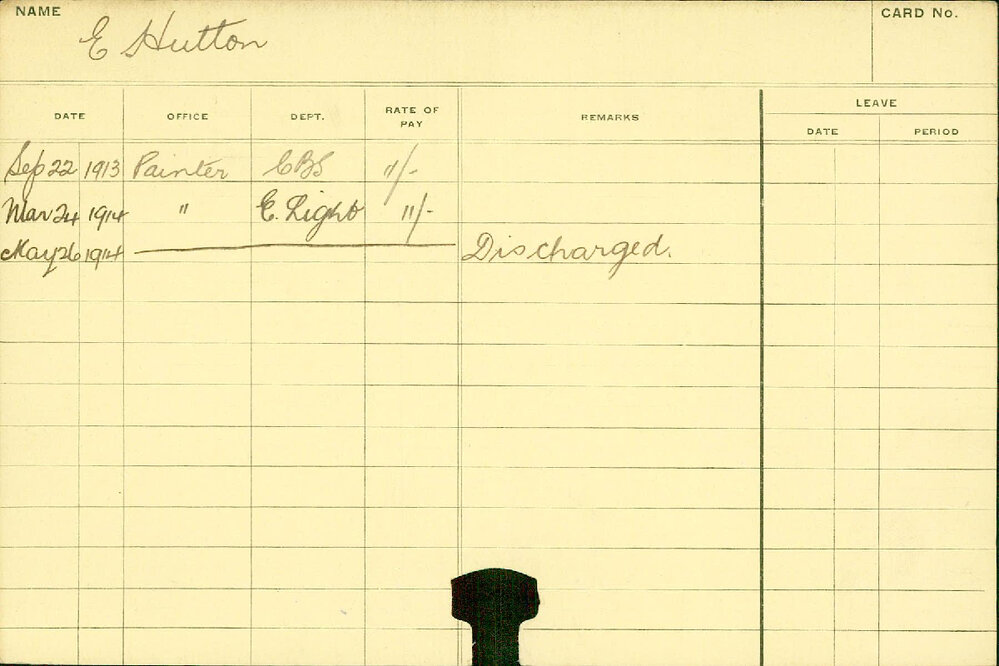 NAME CARD No.
E Hutton
DATE OFFICE DEPT. RATE OF PAY REMARKS LEAVE
DATE PERIOD
Sep 22 1913 Painter CBS 11/-
Mar 24 1914 " E. Light 11/-
May 26 1914 Discharged.